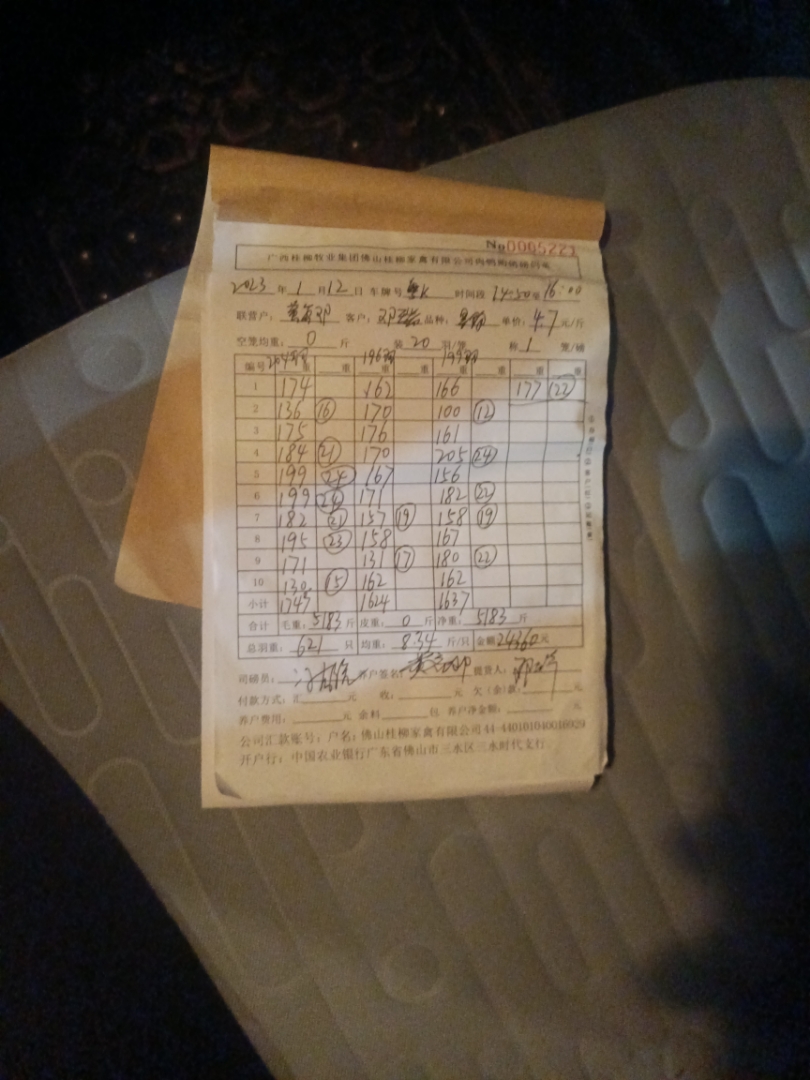 №0005221
广西桂柳牧业集团佛山桂柳家禽有限公司
2023年1月12日 车牌号 粤K 时间段 14:50至16:00
联营户: 客户: 品种: 单价: 4.7元/斤
空笼均重: 0 斤 装 20 羽/笼 称 1 笼/磅
编号 204羽重 重 196羽重 重 199羽重 重 重 重
1 174 162 166 177 22
2 136 16 170 100 12
3 175 176 161
4 184 21 170 205 24
5 199 24 167 156
6 199 24 171 182 22
7 182 21 157 19 158 19
8 195 23 158 167
9 171 131 17 180 22
10 130 15 162 162
小计 1745 1624 1637
合计 毛重: 5183斤 皮重: 0 斤 净重: 5183斤
总羽重: 621 只 均重: 8.34 斤/只 金额24360元
司磅员: 养户签名: 提货人:
付款方式: 汇 元 收: 元 欠(余)款: 元
养户费用: 元 余料 包 养户净金额: 元
公司汇款账号: 户名: 佛山桂柳家禽有限公司44-440101040016929
开户行: 中国农业银行广东省佛山市三水区三水时代支行